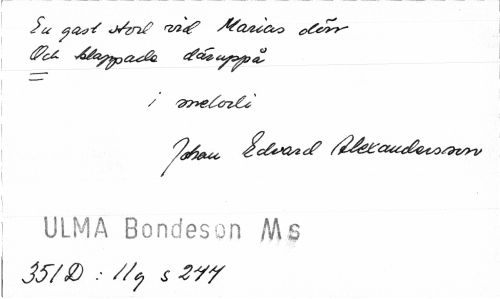 En gast stod vid Marias dörr
Och klappade däruppå
1 melodi
Johan Edvard Alexandersson
ULMA Bondeson Ms
351D : 11g s 244